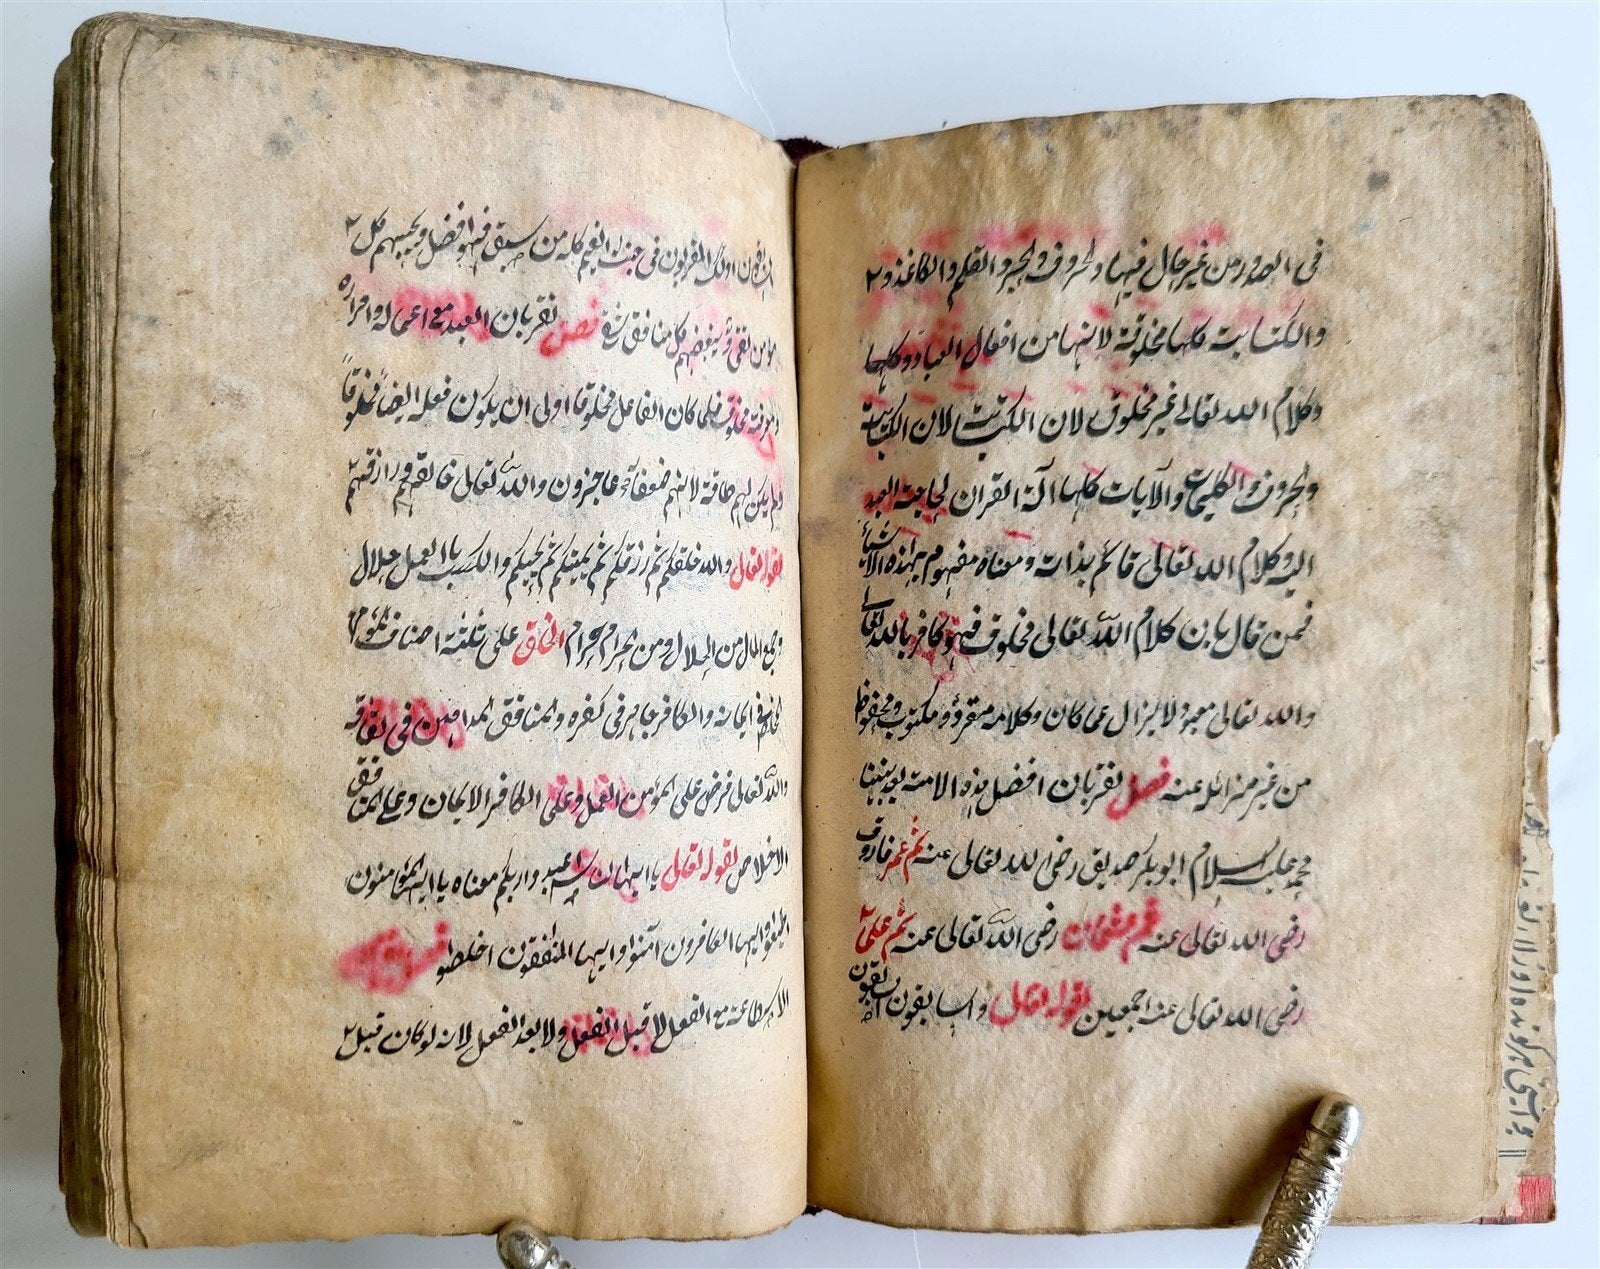 فى الصدور من غير حال فيها والحروف والحبر والقلم والكاغذ و٢
والكتابة كلها مخلوقة لانها من افعال العباد وكلها
وكلام الله تعالى غير مخلوق لان الكتابت لان الكتابت
والحروف والكلمات والآيات كلها آلة القران لحاجة العبد
اليه وكلام الله تعالى قائم بذات ومعناه مفهوم بهذه الاشياء
فمن قال بان كلام الله تعالى مخلوق فهو كافر بالله تعالى
والله تعالى معبود لا يزال عما كان وكلامه مقروء ومكتوب ومحفوظ
من غير مزائلة عنه فصل نقر بان افضل هذه الامة بعد نبينا
محمد عليه السلام ابو بكر صديق رضى الله تعالى عنه ثم عمر فاروق
رضى الله تعالى عنه ثم عثمان رضى الله تعالى عنه ثم على
رضى الله تعالى عنه اجمعين لقوله تعالى والسابقون السابقون
اولئك المقربون فى جنات النعيم كله من سبق فهو افضل ويحبهم كل ٢
مؤمن تقى ويبغضهم كل منافق شقى فصل نقر بان العبد مع اعماله واقراره
ومعرفته مخلوق فلما كان الفاعل مخلوقا اولى ان يكون فعله ايضا مخلوقا
ولم يكن لهم طاقة لانهم ضعفاء عاجزون والله تعالى خالقهم ورازقهم
لقوله تعالى والله خلقكم ثم رزقكم ثم يميتكم ثم يحييكم والكسب بالعمل حلال
وجمع المال من الحلال ومن الحرام حرام الخلق على ثلثة اصناف المؤمن
المخلص فى ايمانه والكافر جاهر فى كفره والمنافق المداهن فى نفاقه
والله تعالى فرض على المؤمن العمل وعلى الكافر الايمان وعلى المنافق
الاخلاص لقوله تعالى يا ايها الناس اعبدوا ربكم معناه يا ايها المؤمنون
اطيعوا وايها الكافرون آمنوا وايها المنافقون اخلصوا
الاستطاعة مع الفعل لا قبل الفعل ولا بعد الفعل لانه لو كان قبل ٢